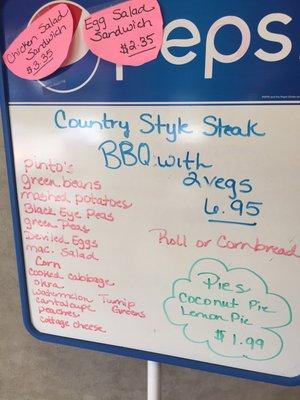 Chicken Salad
Sandwich
$3.35
Egg Salad
Sandwich
$2.35
peps
Country Style Steak
BBQ with
2 vegs
6.95
pinto's
green beans
mashed potatoes
Black Eye Peas
green Peas
Deviled Eggs
mac. Salad
Corn
cooked cabbage
okra
watermelon
Turnip
Greens
cantaloupe
peaches
cottage cheese
Roll or Cornbread
Pies
Coconut Pie
Lemon Pie
$1.99